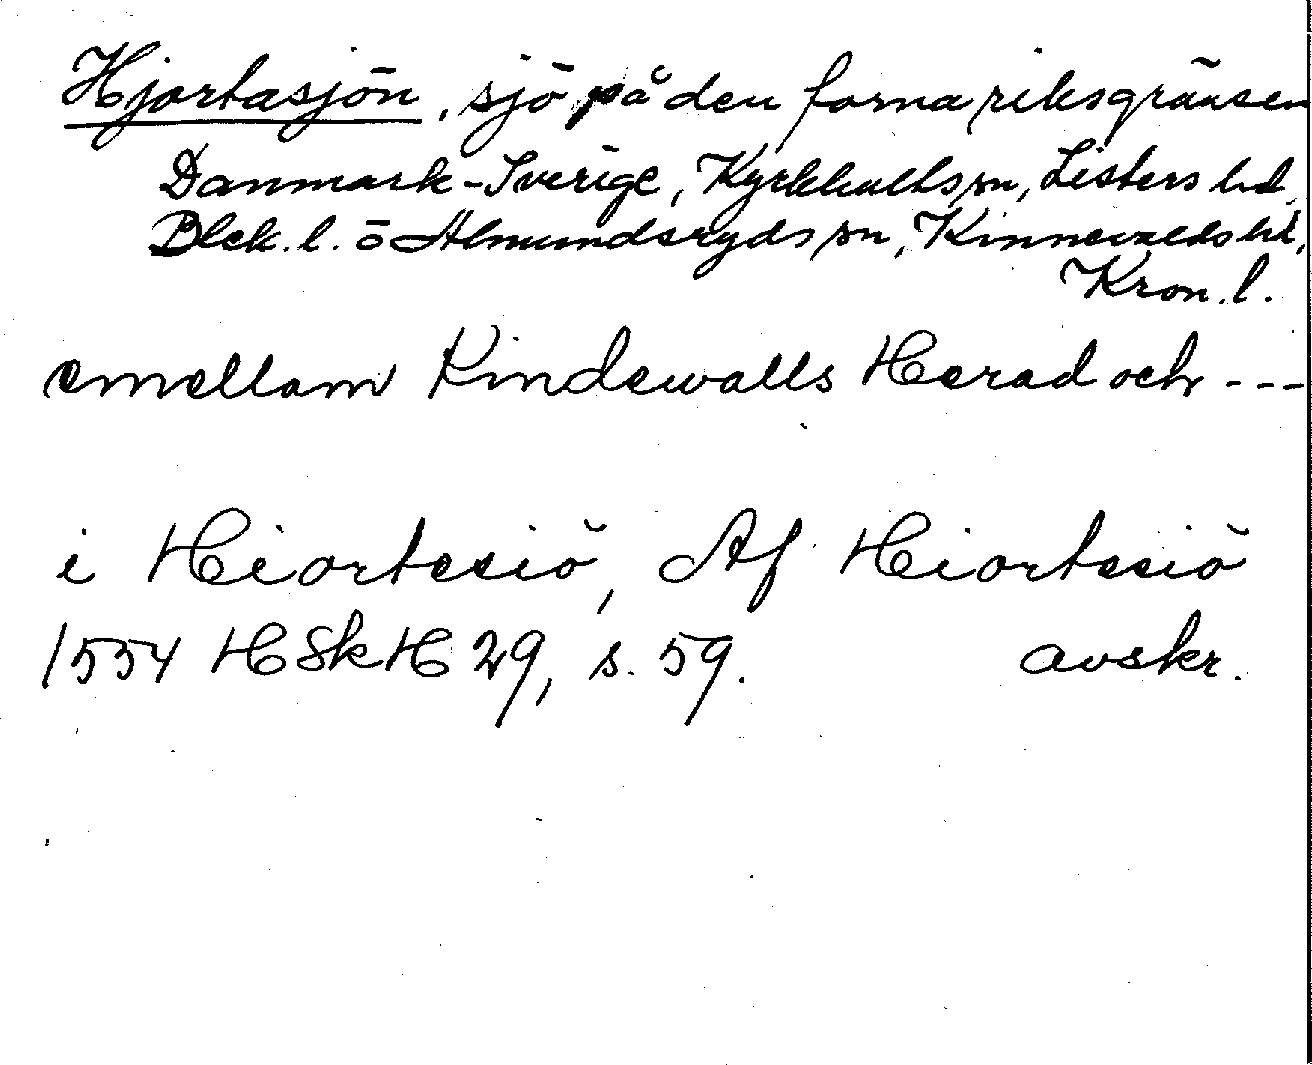 Hjortasjön, sjö på den forna riksgränsen
Danmark-Sverige, Kyrkhults sn, Listers hd
Blek. l. o Almundsryds sn, Kinnevalds hd,
Kron. l.
emellam Kindewalls Herad och ---
i Hiortesiö, Af Hiortesiö
1554 HSkH 29, s. 59. avskr.